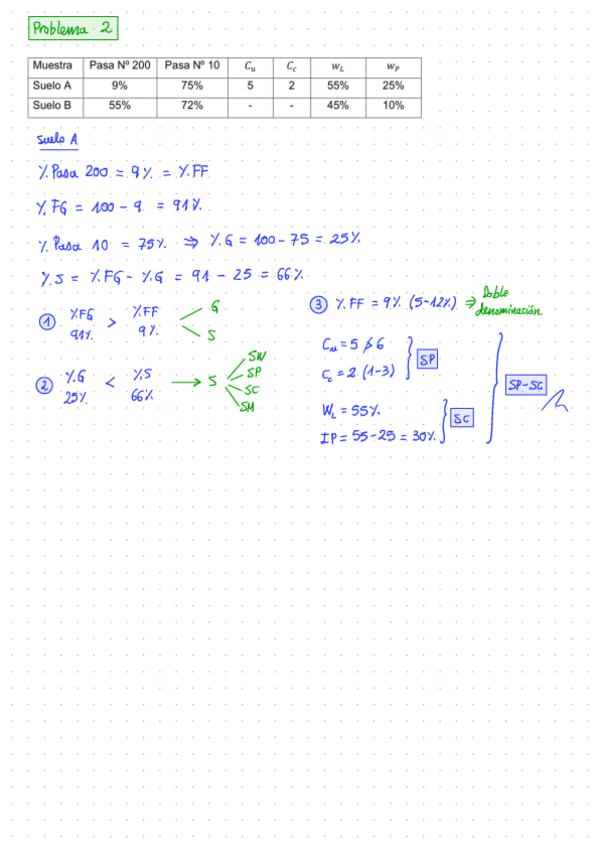 Problema 2
Muestra Pasa Nº 200 Pasa Nº 10 Cu Cc wL wP
Suelo A 9% 75% 5 2 55% 25%
Suelo B 55% 72% - - 45% 10%
Suelo A
%Pasa 200 = 9% = %FF
%FG = 100 - 9 = 91%
%Pasa 10 = 75% ⇒ %G = 100 - 75 = 25%
%S = %FG - %G = 91 - 25 = 66%
① %FG > %FF G
91% 9% S
② %G < %S → S SW
25% 66% SP
SC
SM
③ %FF = 9% (5-12%) ⇒ Doble denominación
Cu = 5 ≯ 6
Cc = 2 (1-3)
SP
WL = 55%
IP = 55 - 25 = 30%
SC
SP-SC